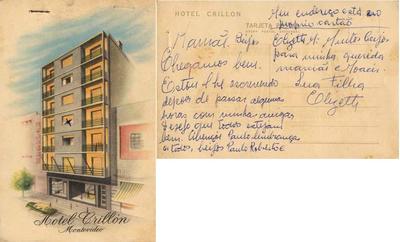 Hotel Crillón
Montevideo
HOTEL CRILLON
TARJETA
Meu endereço está no
proprio cartão
Mamãe. Beijos
Chegamos bem.
Estou lhe escrevendo
depois de passar algumas
horas com minha amiga
Desejo que todos estejam
bem. Abraços Paulo lembrança
a todos, beijos Paulo Roberto e
Elizette. Muitos beijos
para minha querida
mamãe e
Sua Filha
Elizette